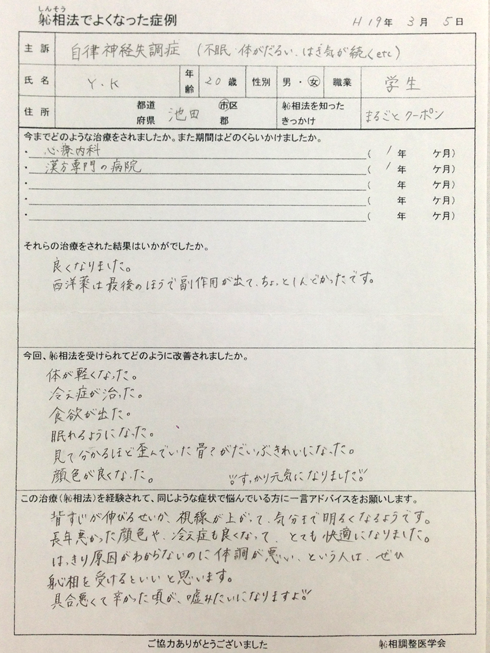 しんそう
躰相法でよくなった症例
H19年 3月 5日
主訴 自律神経失調症 (不眠・体がだるい、はき気が続くetc)
氏名 Y.K 年齢 20歳 性別 男・女 職業 学生
住所 都道府県 池田 市区郡 躰相法を知ったきっかけ まるごとクーポン
今までどのような治療をされましたか。また期間はどのくらいかけましたか。
・心療内科 ( 1 年 ケ月)
・漢方専門の病院 ( 1 年 ケ月)
・ ( 年 ケ月)
・ ( 年 ケ月)
・ ( 年 ケ月)
それらの治療をされた結果はいかがでしたか。
良くなりました。
西洋薬は最後のほうで副作用が出て、ちょっとしんどかったです。
今回、躰相法を受けられてどのように改善されましたか。
体が軽くなった。
冷え症が治った。
食欲が出た。
眠れるようになった。
見て分かるほど歪んでいた骨てがだいぶきれいになった。
顔色が良くなった。 !!すっかり元気になりました!!
この治療(躰相法)を経験されて、同じような症状で悩んでいる方に一言アドバイスをお願いします。
背すじが伸びるせいか、視線が上がって、気分まで明るくなるようです。
長年悪かった顔色や、冷え症も良くなって、とても快適になりました。
はっきり原因がわからないのに体調が悪い、という人は、ぜひ
躰相を受けるといいと思います。
具合悪くて辛かった頃が、嘘みたいになりますよ!!
ご協力ありがとうございました
躰相調整医学会